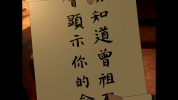 知道曾祖
顯示你的